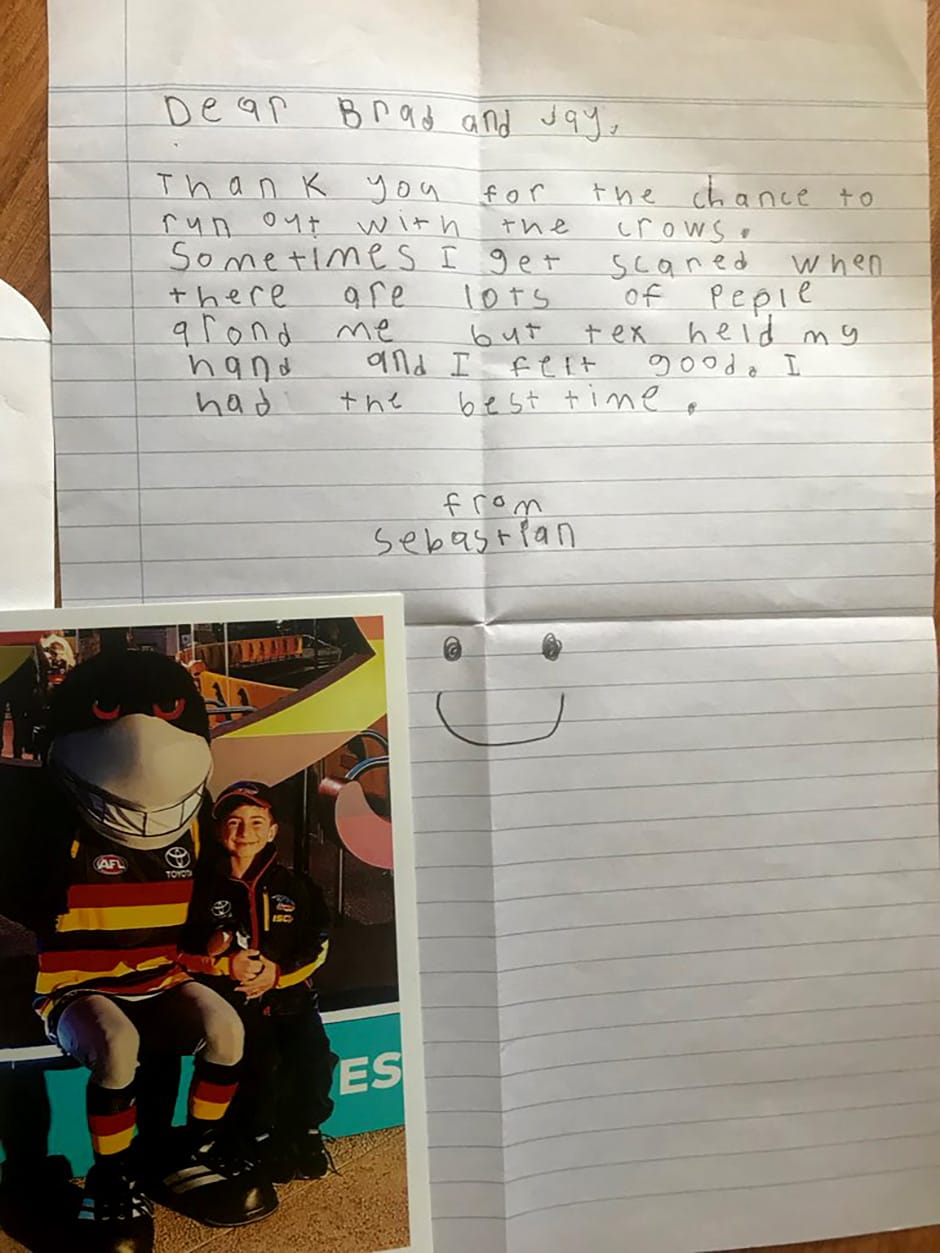 Dear Brad and Jay,
Thank you for the chance to
run out with the crows.
Sometimes I get scared when
there are lots of Peple
arond me but tex held my
hand and I felt good. I
had the best time.
from
Sebastian
AFL
TOYOTA
ISC
ES